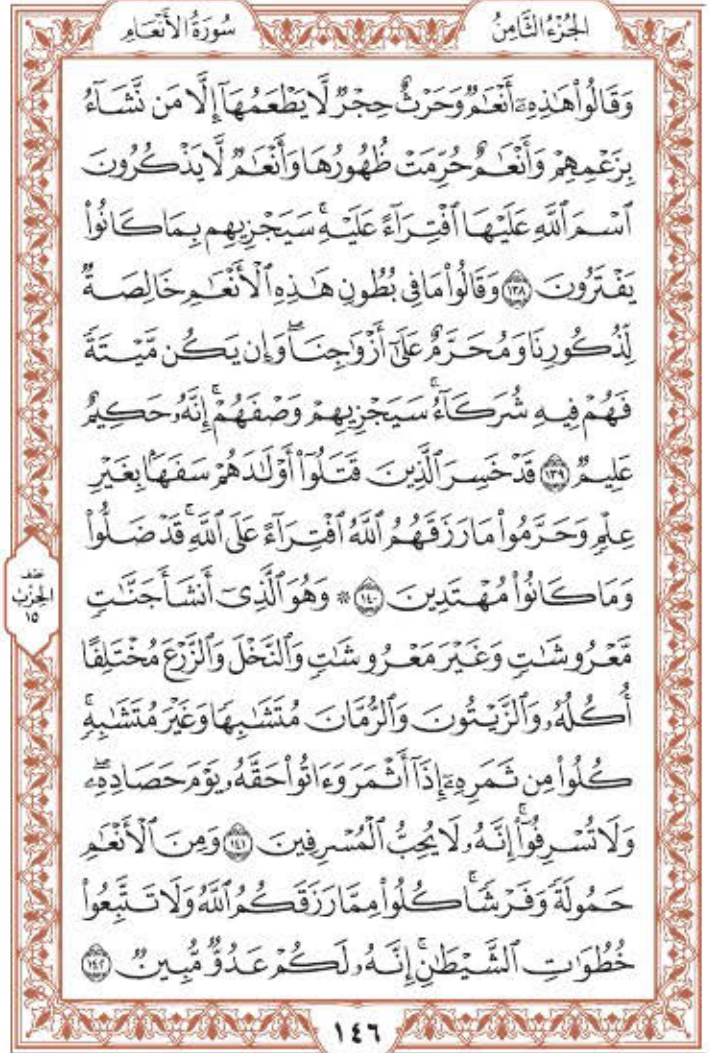 سُورَةُ الأَنْعَامِ
الجُزْءُ الثَّامِنُ
وَقَالُوا۟ هَٰذِهِۦٓ أَنْعَٰمٌ وَحَرْثٌ حِجْرٌ لَّا يَطْعَمُهَآ إِلَّا مَن نَّشَآءُ
بِزَعْمِهِمْ وَأَنْعَٰمٌ حُرِّمَتْ ظُهُورُهَا وَأَنْعَٰمٌ لَّا يَذْكُرُونَ
ٱسْمَ ٱللَّهِ عَلَيْهَا ٱفْتِرَآءً عَلَيْهِ ۚ سَيَجْزِيهِم بِمَا كَانُوا۟
يَفْتَرُونَ ١٣٨ وَقَالُوا۟ مَا فِى بُطُونِ هَٰذِهِ ٱلْأَنْعَٰمِ خَالِصَةٌ
لِّذُكُورِنَا وَمُحَرَّمٌ عَلَىٰٓ أَزْوَٰجِنَا ۖ وَإِن يَكُن مَّيْتَةً
فَهُمْ فِيهِ شُرَكَآءُ ۚ سَيَجْزِيهِمْ وَصْفَهُمْ ۚ إِنَّهُۥ حَكِيمٌ
عَلِيمٌ ١٣٩ قَدْ خَسِرَ ٱلَّذِينَ قَتَلُوٓا۟ أَوْلَٰدَهُمْ سَفَهًۢا بِغَيْرِ
عِلْمٍ وَحَرَّمُوا۟ مَا رَزَقَهُمُ ٱللَّهُ ٱفْتِرَآءً عَلَى ٱللَّهِ ۚ قَدْ ضَلُّوا۟
وَمَا كَانُوا۟ مُهْتَدِينَ ١٤٠ ۞ وَهُوَ ٱلَّذِىٓ أَنشَأَ جَنَّٰتٍ
مَّعْرُوشَٰتٍ وَغَيْرَ مَعْرُوشَٰتٍ وَٱلنَّخْلَ وَٱلزَّرْعَ مُخْتَلِفًا
أُكُلُهُۥ وَٱلزَّيْتُونَ وَٱلرُّمَّانَ مُتَشَٰبِهًا وَغَيْرَ مُتَشَٰبِهٍ ۚ
كُلُوا۟ مِن ثَمَرِهِۦٓ إِذَآ أَثْمَرَ وَءَاتُوا۟ حَقَّهُۥ يَوْمَ حَصَادِهِۦ ۖ
وَلَا تُسْرِفُوٓا۟ ۚ إِنَّهُۥ لَا يُحِبُّ ٱلْمُسْرِفِينَ ١٤١ وَمِنَ ٱلْأَنْعَٰمِ
حَمُولَةً وَفَرْشًا ۚ كُلُوا۟ مِمَّا رَزَقَكُمُ ٱللَّهُ وَلَا تَتَّبِعُوا۟
خُطُوَٰتِ ٱلشَّيْطَٰنِ ۚ إِنَّهُۥ لَكُمْ عَدُوٌّ مُّبِينٌ ١٤٢
نصف
الحِزْب
١٥
١٤٦